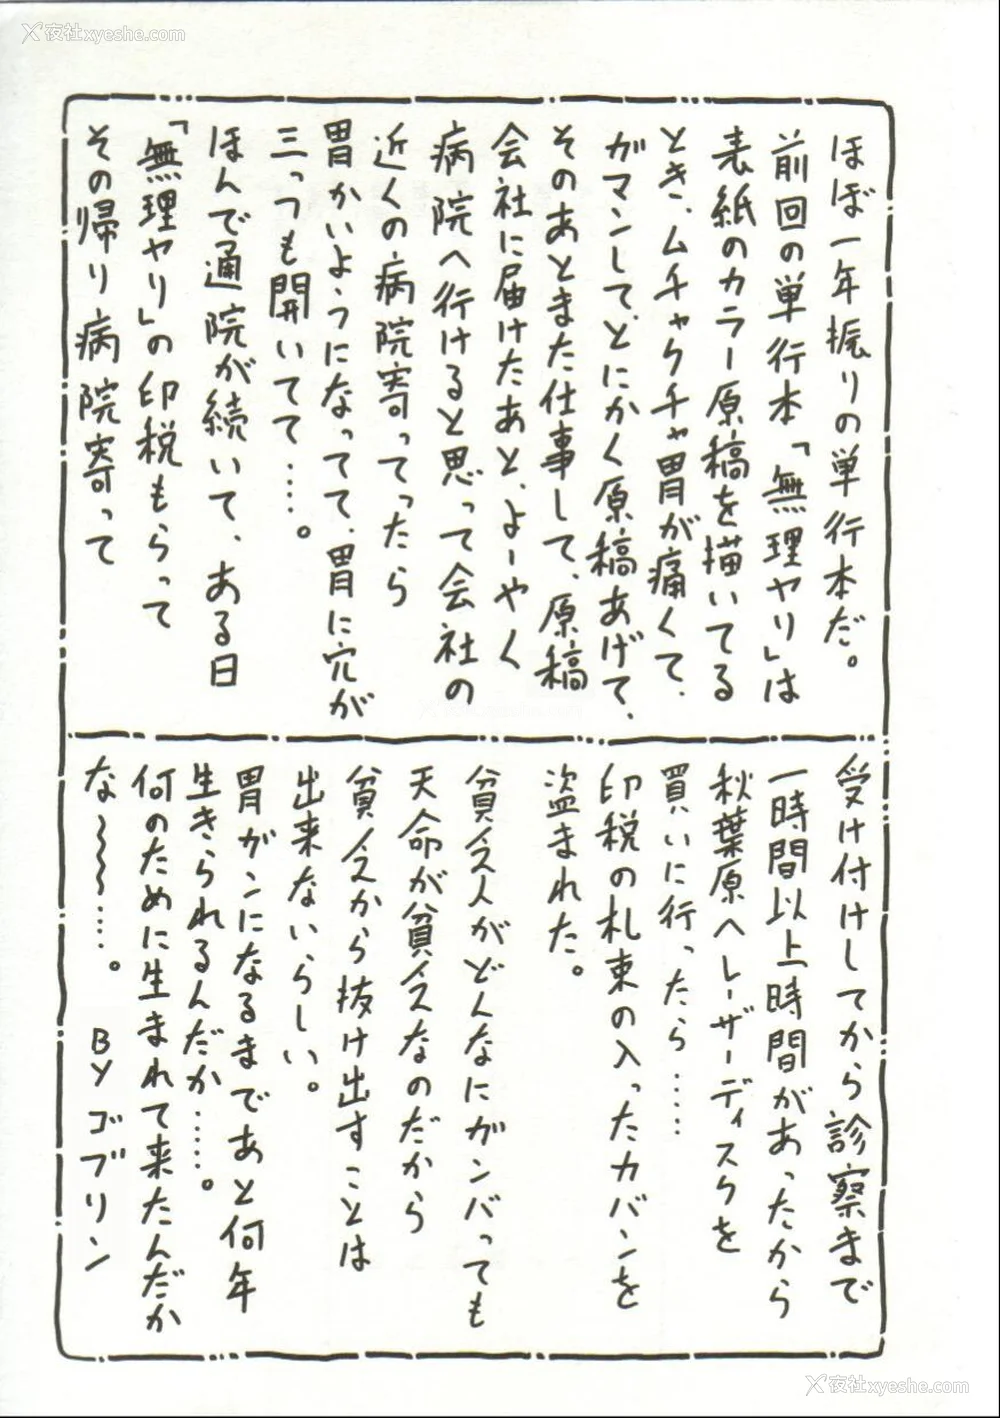 夜社xyeshe.com
ほぼ一年振りの単行本だ。
前回の単行本「無理ヤリ」は
表紙のカラー原稿を描いてる
とき、ムチャクチャ胃が痛くて、
ガマンして、とにかく原稿あげて、
そのあとまた仕事して、原稿
会社に届けたあと、よーやく
病院へ行けると思って会社の
近くの病院寄ってったら
胃かいようになってて、胃に穴が
三っつも開いてて…。
ほんで通院が続いて、ある日
「無理ヤリ」の印税もらって
その帰り病院寄って
受け付けしてから診察まで
一時間以上時間があったから
秋葉原へレーザーディスクを
買いに行ったら……
印税の札束の入ったカバンを
盗まれた。
貧乏人がどんなにガンバっても
天命が貧乏なのだから
貧乏から抜け出すことは
出来ないらしい。
胃ガンになるまであと何年
生きられるんだか……。
何のために生まれて来たんだか
な〜〜〜…。 BYゴブリン
夜社xyeshe.com